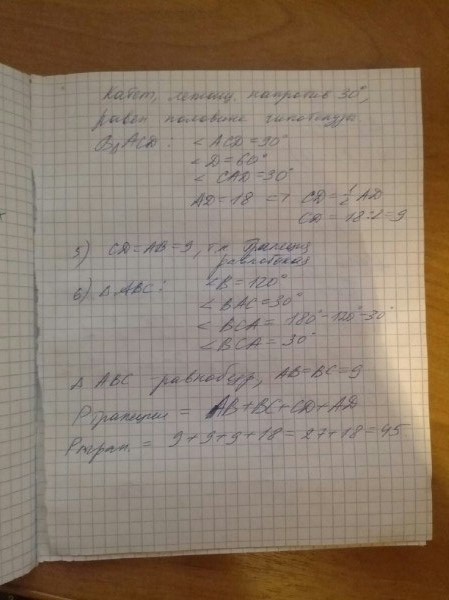 Катет, лежащ. напротив 30°,
равен половине гипотенузы
∠ACD = 90°
∠D = 60°
∠CAD = 30°
AD = 18 => CD = 1/2 AD
CD = 18:2 = 9
5) CD = AB = 9, т.к. трапеция
равнобокая
6) Δ ABC: ∠B = 120°
∠BAC = 30°
∠BCA = 180°-120°-30°
∠BCA = 30°
Δ ABC равнобедр, AB = BC = 9
Pтрапеции = AB + BC + CD + AD
Pтрап. = 9 + 9 + 9 + 18 = 27 + 18 = 45